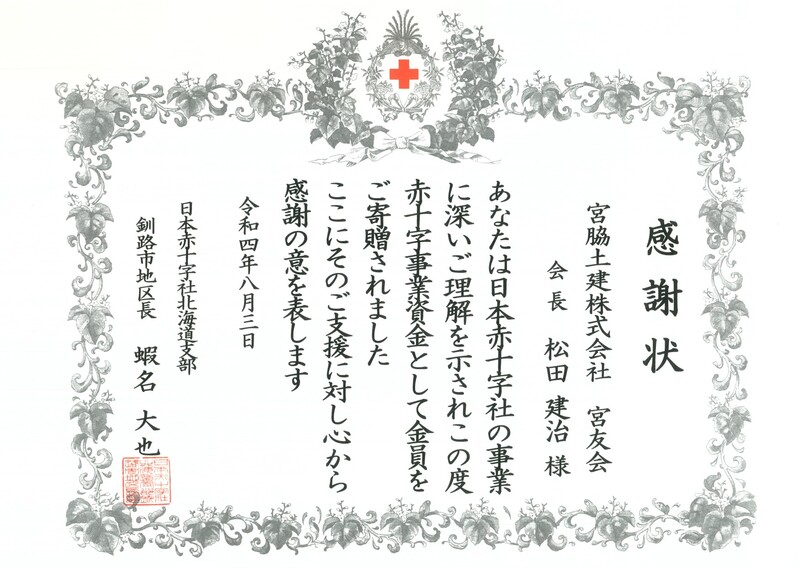 感謝状
宮脇土建株式会社 宮友会
会長 松田建治様
あなたは日本赤十字社の事業
に深いご理解を示されこの度
赤十字事業資金として金員を
ご寄贈されました
ここにそのご支援に対し心から
感謝の意を表します
令和四年八月三日
日本赤十字社北海道支部
釧路市地区長 蝦名大也